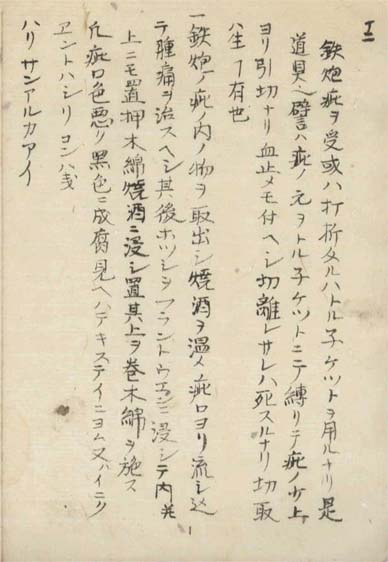 鉄炮疵ヲ受或ハ打折タルハトル子ケツトヲ用ルナリ是
道具ハ譬ハ疵ノ元ヲトル子ケツトニテ縛リテ疵ノ少上
ヨリ引切ナリ血止メモ付ヘシ切離レサレハ死スルナリ切取
ハ生ヿ有也
一鉄炮ノ疵ノ内ノ物ヲ取出シ焼酒ヲ温メ疵口ヨリ流シ込
テ腫痛ヲ治スヘシ其後ホツシヲフラントウエンニ浸シテ内ニ
上ニモ置押木綿焼酒ニ浸シ置其上ヲ巻木綿ヲ施ス
凡疵口色悪ク黒色ニ成腐見ヘハテキステイニヨム又ハイニク
エントハシリコン八戔
ハリサンアルカアイ